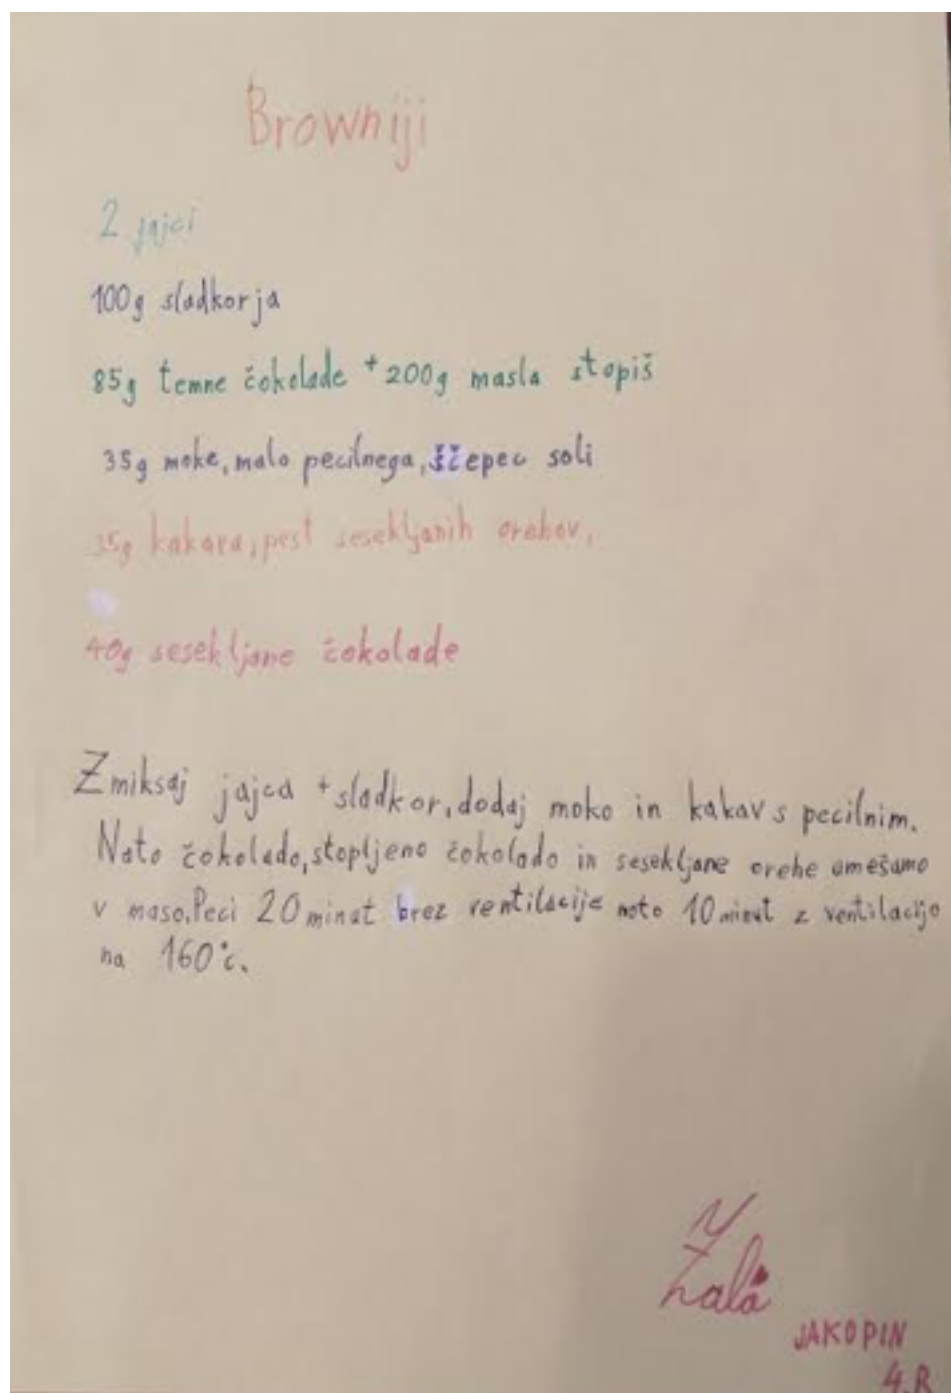 Browniji
2 jajci
100g sladkorja
85g temne čokolade + 200g masla stopiš
35g moke, malo pecilnega, ščepec soli
35g kakava, pest sesekljanih orehov,
40g sesekljane čokolade
Zmiksaj jajca + sladkor, dodaj moko in kakav s pecilnim.
Nato čokolado, stopljeno čokolado in sesekljane orehe umešamo
v maso. Peci 20 minut brez ventilacije nato 10 minut z ventilacijo
na 160°c.
Žala
JAKOPIN
4.B